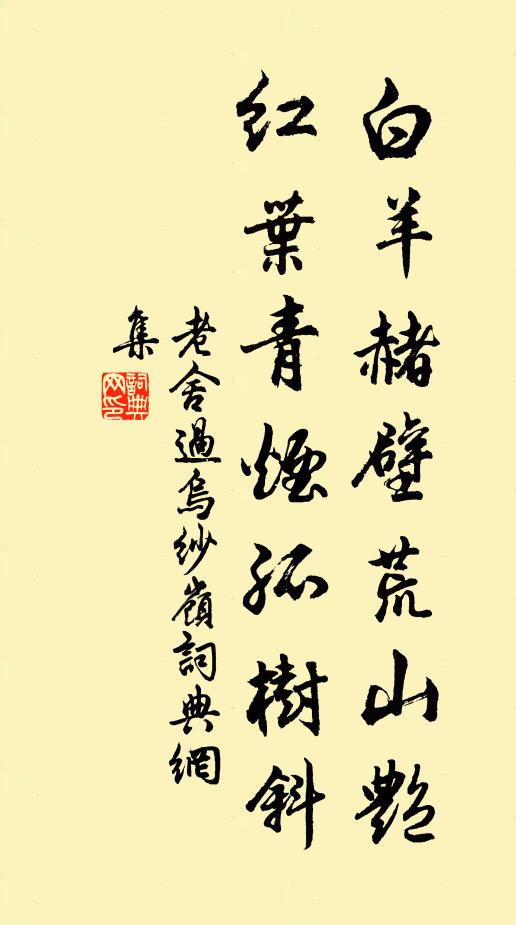 白羊赭壁荒山艷
紅葉青煙孤樹斜
老舍過烏紗嶺詞典網
集
詞典
网印